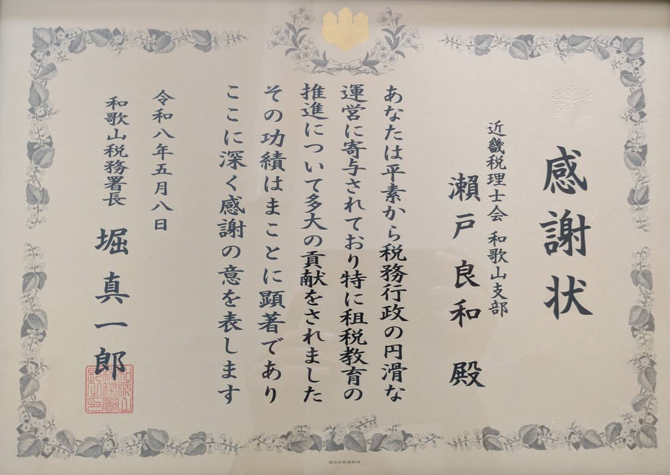 感謝状
近畿税理士会 和歌山支部
瀬戸良和 殿
あなたは平素から税務行政の円滑な
運営に寄与されており特に租税教育の
推進について多大の貢献をされました
その功績はまことに顕著であり
ここに深く感謝の意を表します
令和八年五月八日
和歌山税務署長 堀真一郎